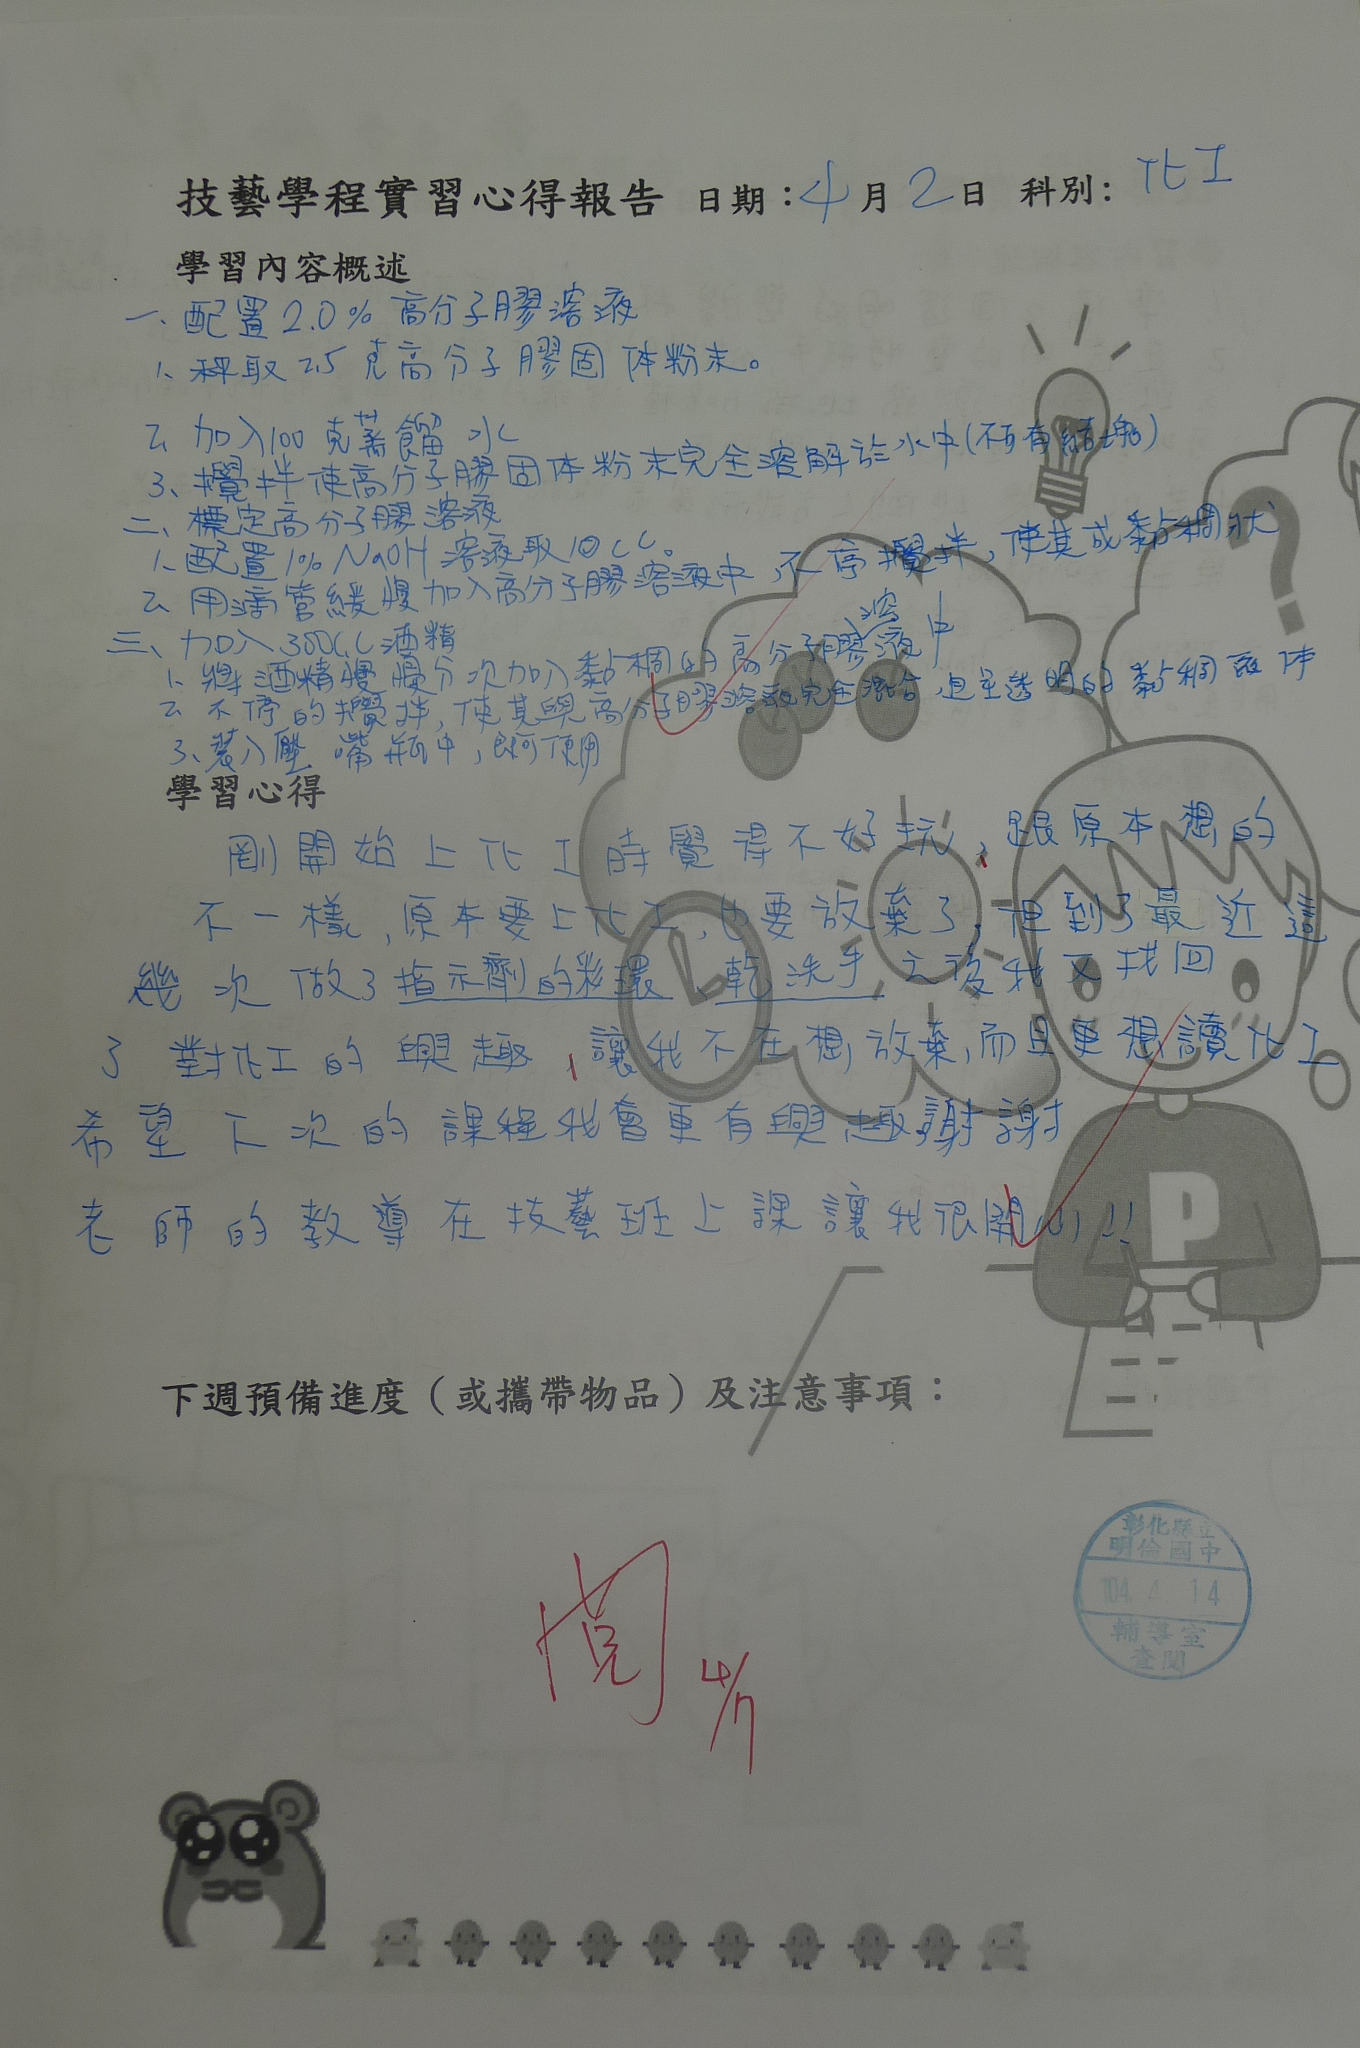 技藝學程實習心得報告 日期：4月2日 科別：化工
學習內容概述
一、配置2.0%高分子膠溶液
1、秤取2.5克高分子膠固体粉末。
2、加入100克蒸餾水
3、攪拌使高分子膠固体粉末完全溶解於水中(不可有結塊)
二、標定高分子膠溶液
1、配置1% NaOH溶液取10c.c.
2、用滴管緩慢加入高分子膠溶液中,不停攪拌,使其成黏稠狀
三、加入300c.c酒精
1、將酒精慢慢分次加入黏稠的高分子膠溶液中
2、不停的攪拌,使其與高分子膠溶液完全混合 且呈透明的黏稠液体
3、裝入壓嘴瓶中,即可使用
學習心得
剛開始上化工時覺得不好玩,跟原本想的
不一樣,原本要上化工,也要放棄了,但到了最近這
幾次做了指示劑的彩環、乾洗手之後我又找回
了對化工的興趣,讓我不在想放棄,而且更想讀化工
希望下次的課程我會更有興趣,謝謝
老師的教導在技藝班上課讓我很開心!!
下週預備進度（或攜帶物品）及注意事項：
閱 4/7
彰化縣立
明倫國中
104. 4. 14
輔導室
查閱
P
?